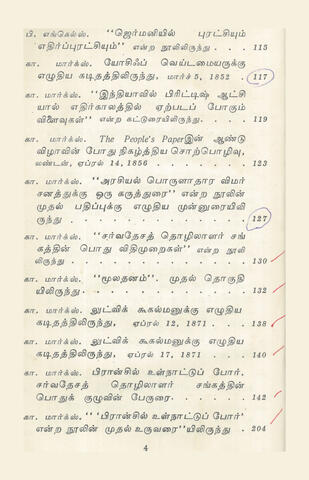 பி. எங்கெல்ஸ். ''ஜெர்மனியில் புரட்சியும்
எதிர்ப்புரட்சியும்'' என்ற நூலிலிருந்து . . . 115
கா. மார்க்ஸ். யோசிஃப் வெய்டமையருக்கு
எழுதிய கடிதத்திலிருந்து, மார்ச் 5, 1852 . 117
கா. மார்க்ஸ். ''இந்தியாவில் பிரிட்டிஷ் ஆட்சி
யால் எதிர்காலத்தில் ஏற்படப் போகும்
விளைவுகள்'' என்ற கட்டுரையிலிருந்து . . . . 119
கா. மார்க்ஸ். The People's Paperஇன் ஆண்டு
விழாவின் போது நிகழ்த்திய சொற்பொழிவு,
லண்டன், ஏப்ரல் 14, 1856 . . . . . . . . 123
கா. மார்க்ஸ். ''அரசியல் பொருளாதார விமர்
சனத்துக்கு ஒரு கருத்துரை'' என்ற நூலின்
முதல் பதிப்புக்கு எழுதிய முன்னுரையிலி
ருந்து . . . . . . . . . . . . . . . 127
கா. மார்க்ஸ். ''சர்வதேசத் தொழிலாளர் சங்
கத்தின் பொது விதிமுறைகள்'' என்ற நூலி
லிருந்து . . . . . . . . . . . . . . 130
கா. மார்க்ஸ். ''மூலதனம்''. முதல் தொகுதி
யிலிருந்து. . . . . . . . . . . . . . 132
கா. மார்க்ஸ். லுட்விக் கூகல்மனுக்கு எழுதிய
கடிதத்திலிருந்து, ஏப்ரல் 12, 1871 . . . . 138
கா. மார்க்ஸ். லுட்விக் கூகல்மனுக்கு எழுதிய
கடிதத்திலிருந்து, ஏப்ரல் 17, 1871 . . . . 140
கா. மார்க்ஸ். பிரான்சில் உள்நாட்டுப் போர்.
சர்வதேசத் தொழிலாளர் சங்கத்தின்
பொதுக் குழுவின் பேருரை . . . . . . . 142
கா. மார்க்ஸ். '' 'பிரான்சில் உள்நாட்டுப் போர்'
என்ற நூலின் முதல் உருவரை''யிலிருந்து . 204
4